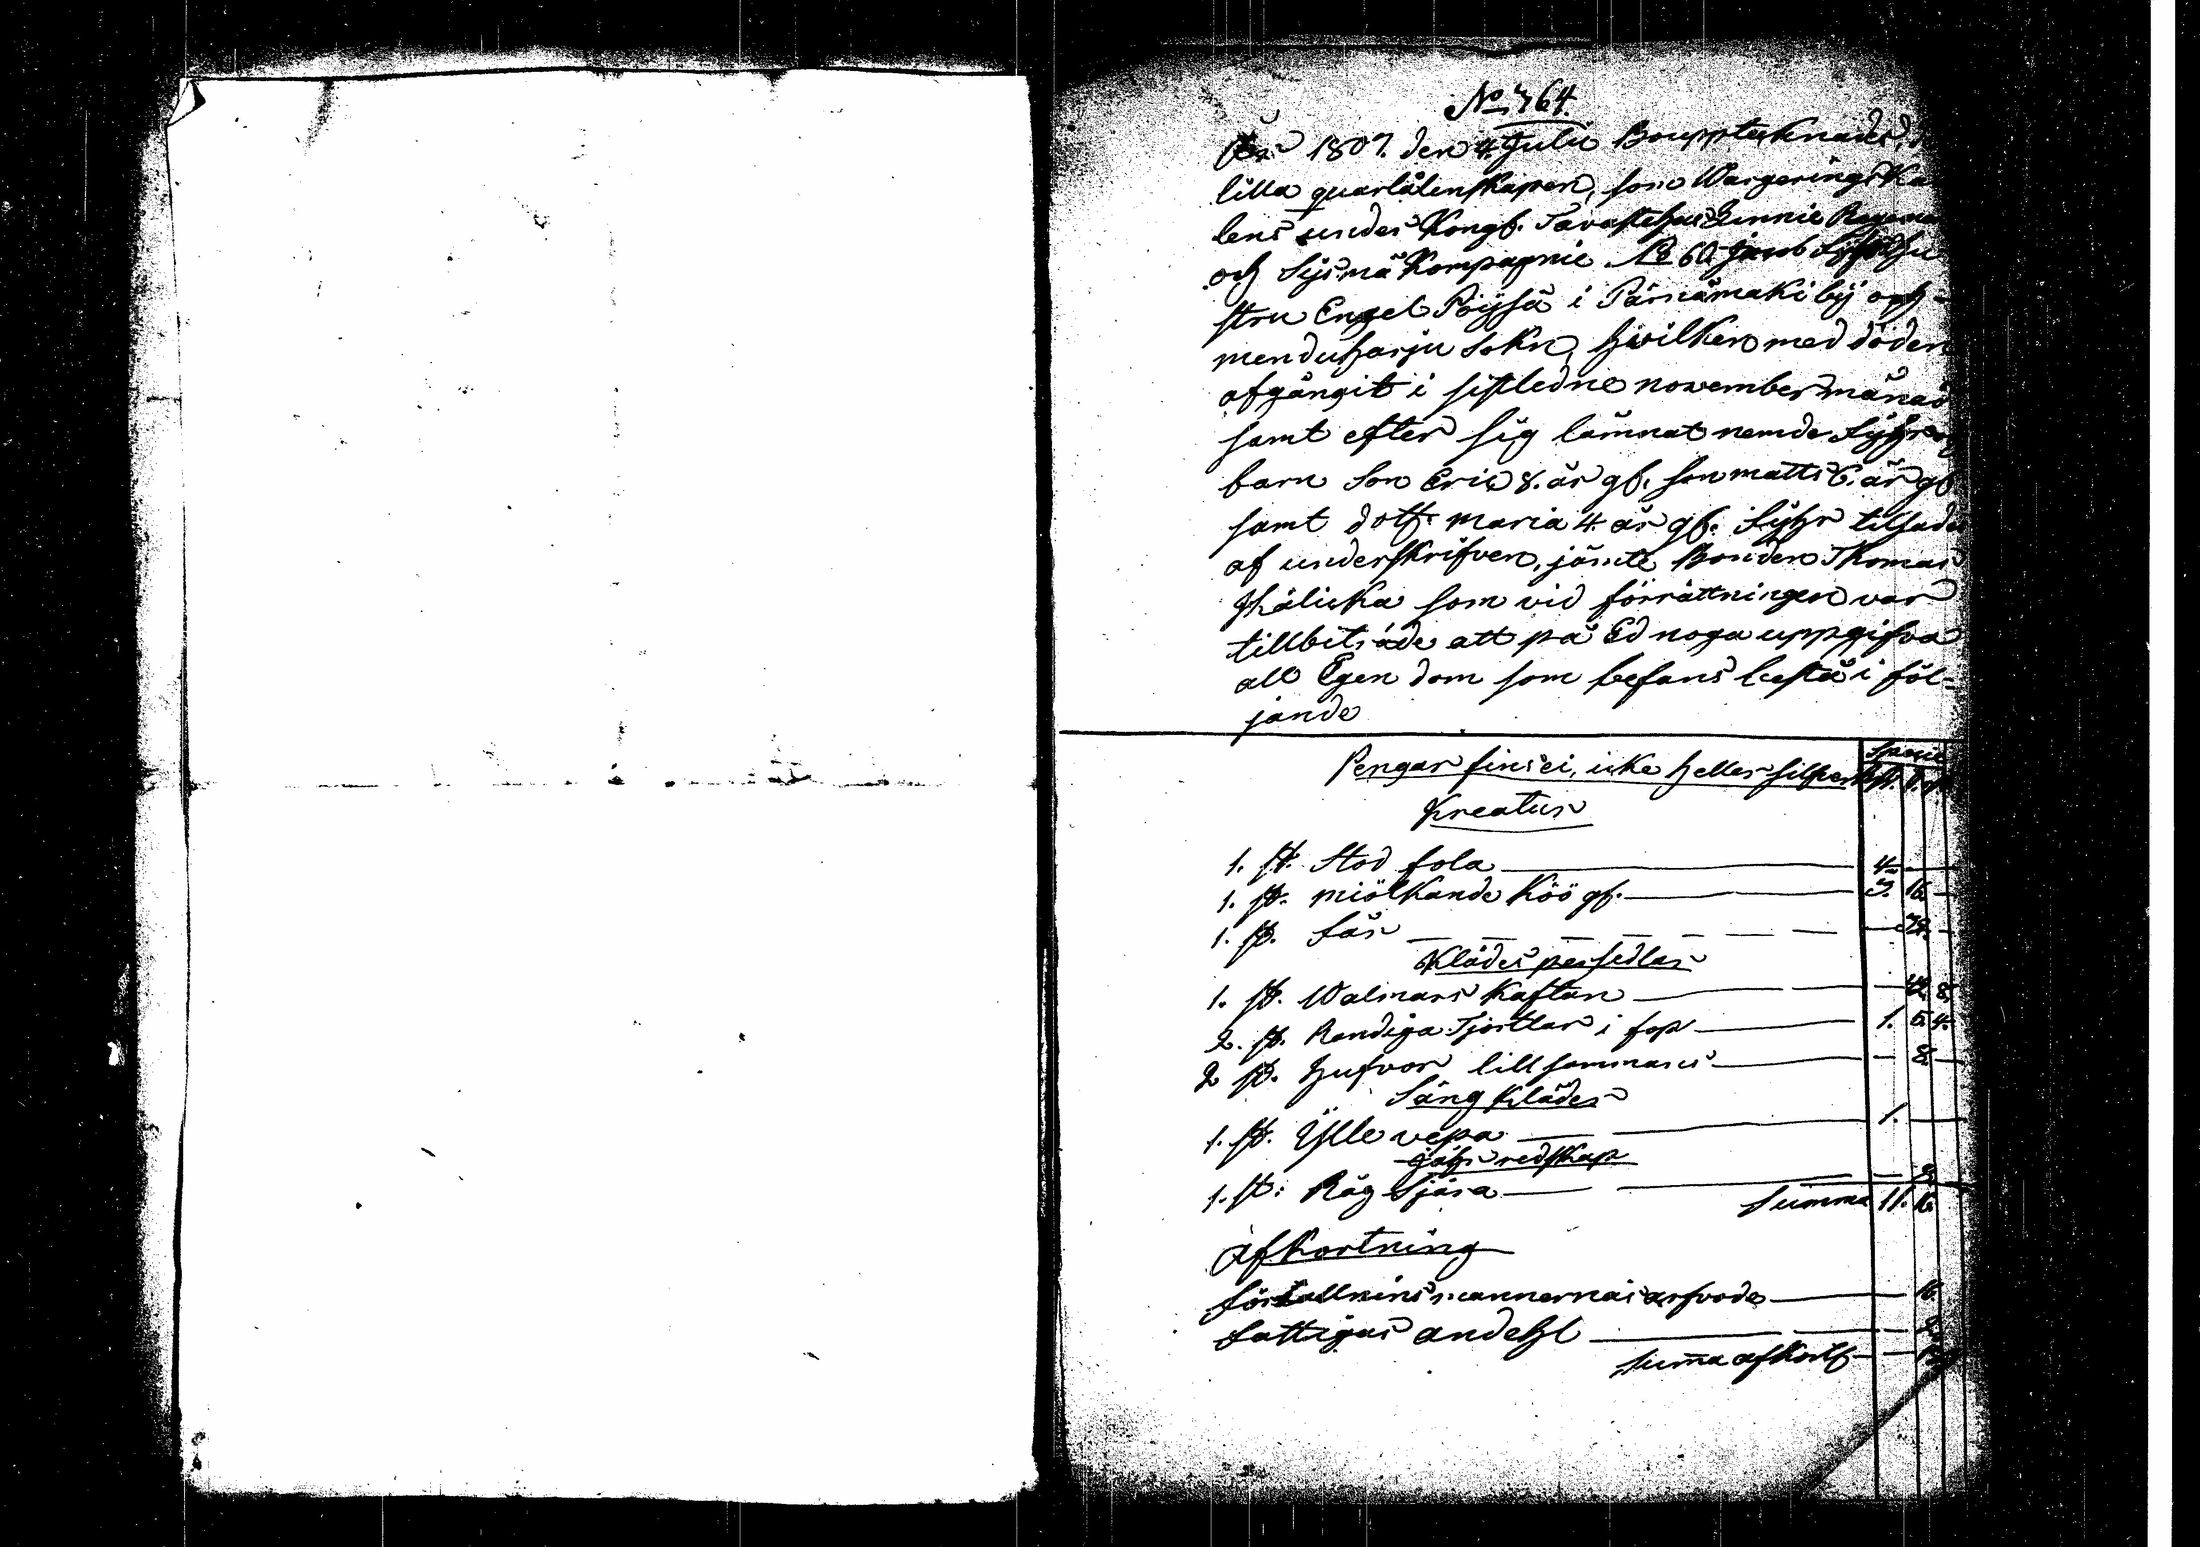 No 764.
År 1807. den 4. Julii Bouppteknades,
lilla quarlåtenskapen, som Wargerings Ka
lens under Kongl. Tavastehus Linnie Regeme
och Sysmä Kompagnie No 60 Jacob Lystihu
stru Engel Pöysä i Pärnämäki bÿ och
menduharju Sokn, hwilken med döden
afgångit i sistledne november månad
samt efter sig lämnat nemde Lÿhr
barn Son Eric 8. år gl. son matts 6. år gl
samt dottr maria 4. år gl. Lÿhr tilsade
af underskrifven, jämte Bonden Thomas
Hälicka som vid förrättningen var
tillbiträde att på Ed noga uppgifva
all Egendom som befans bestå i föl-
jande
Specie
Pengar fins ei, icke heller silfver
Kreatur
1. st. Stod fola 4
1. st. miölkande Köö gl. 3. 16.
1. st. Får 32.
Klädes persedlar
1. st. Walmars Kaftan 42. 8.
2. st. Randiga Tjortlar i fop 1. 5. 4.
2 st. hufvor till sammans 8.
Säng Kläder
1. st. Ÿlle vepa 1.
Jahr redskap
1. st: Råg Sjära 8
Summa 11. 16.
Afkortning
förvallnins mannernas arfvode 16.
fattigas andehl
Summa afkort